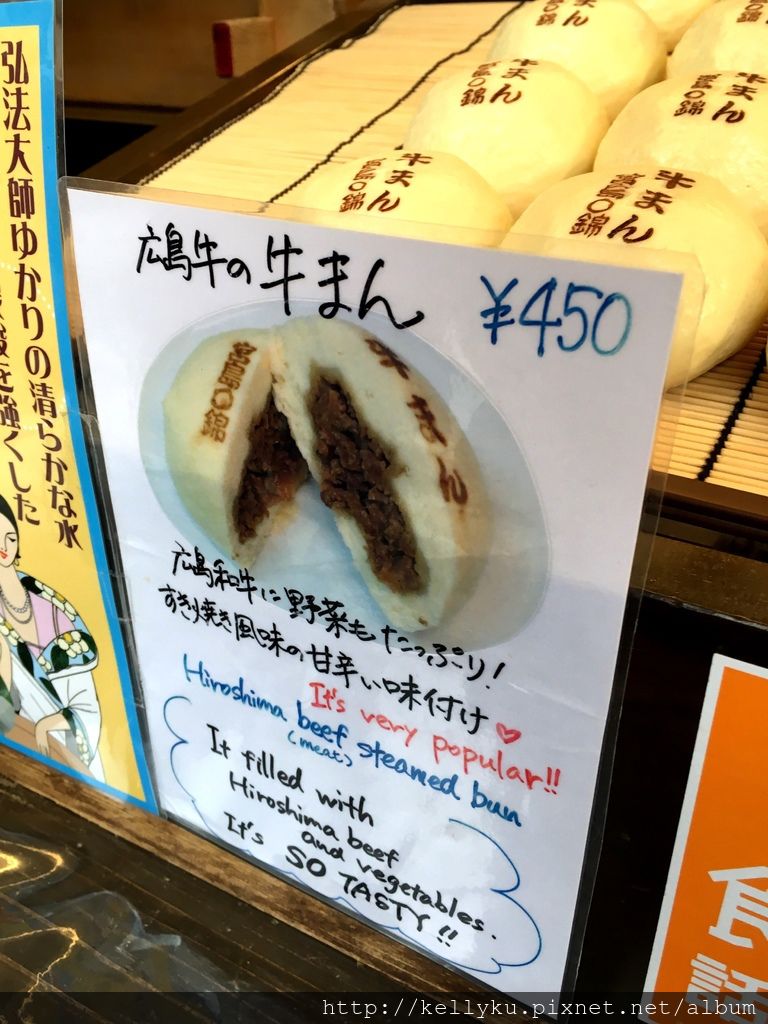 弘法大師ゆかりの清らかな水
を強くした
牛まん
宮島〇錦
牛まん
宮島〇錦
牛まん
宮島〇錦
牛まん
宮島〇錦
牛まん
宮島〇錦
広島牛の牛まん
¥450
牛まん
宮島〇錦
広島和牛に野菜もたっぷり!
すき焼き風味の甘辛い味付け
It's very popular!!
Hiroshima beef steamed bun
(meat)
It filled with
Hiroshima beef
and vegetables.
It's SO TASTY!!
食
話
http://kellyku.pixnet.net/album